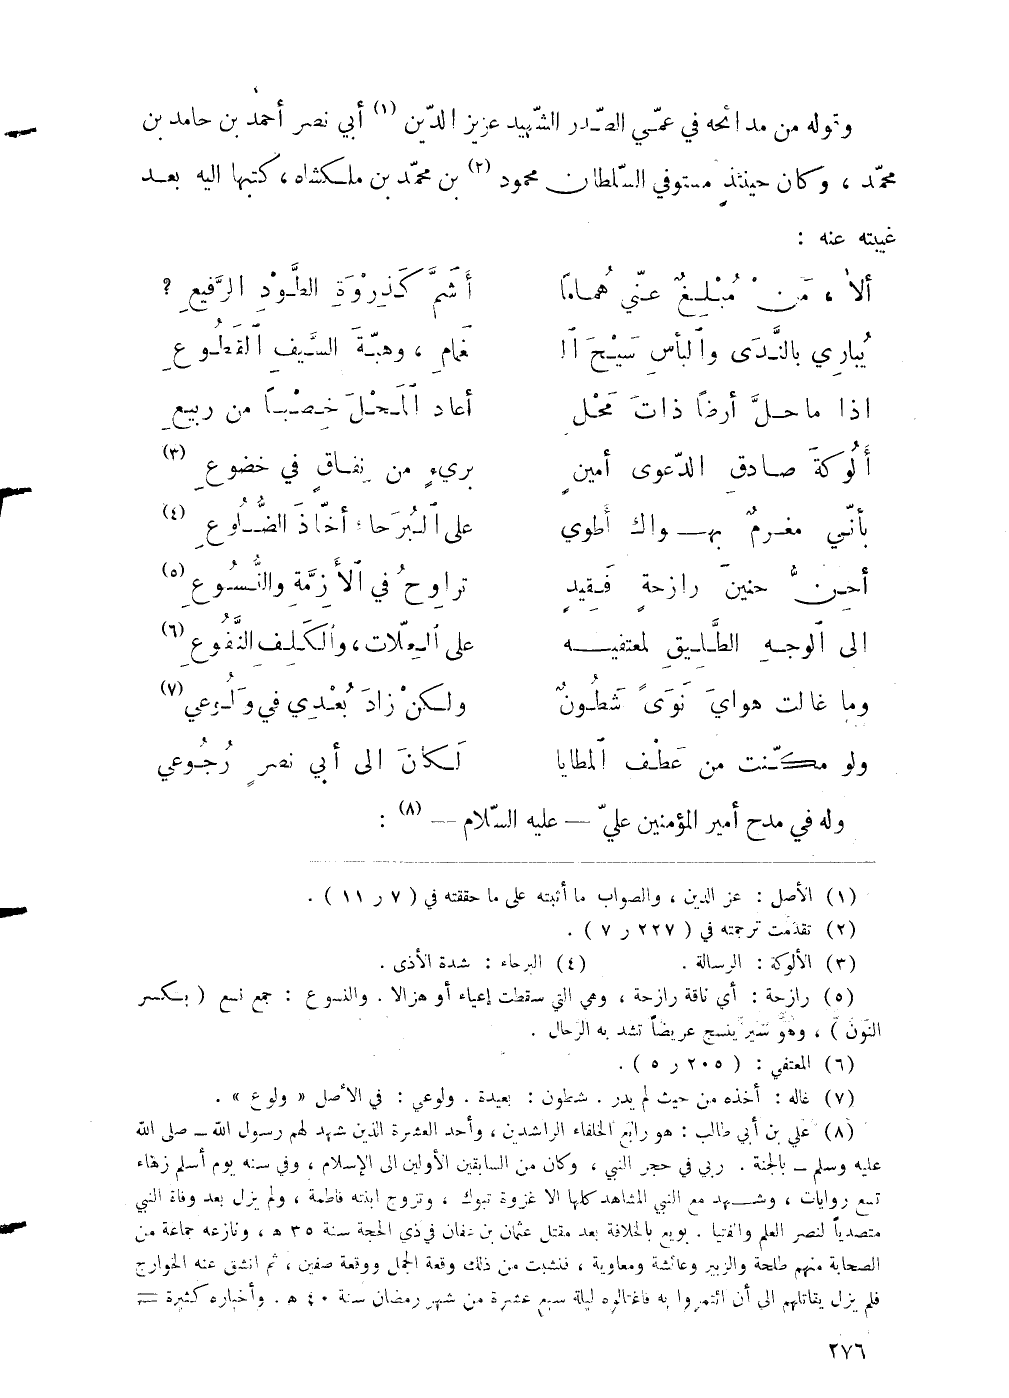 وقوله من مدائحه في عمّي الصّدر الشّهيد عزيز الدّين (١) أبي نصر أحمد بن حامد بن
محمّد ، وكان حينئذٍ مستوفي السّلطان محمود (٢) بن محمّد بن ملكشاه ، كتبها اليه بعد
غيبته عنه :
ألا ، مَنْ مُبْلِغٌ عنّي هُماماً أَشَمَّ كَذِرْوَةِ الطَّوْدِ الرَّفيعِ ؟
يُباري بالنَّدَى والبأسِ سَيْحَ ٱلـ غَمامِ ، وهبّةَ السَّيفِ ٱلقَطُوعِ
اذا ما حلَّ أرضاً ذاتَ مَحْلٍ أعاد ٱلمَحْلَ خِصْباً من ربيعِ
أَلُوكةَ صادقِ الدّعوى أمينٍ بريءٍ من نِفاقٍ في خضوعِ (٣)
بأنّي مغرمٌ بهواك أطوي على ٱلبُرَحاءِ أخّاذَ الضُّلوعِ (٤)
أحِنُّ حنينَ رازحةٍ فَقِيدٍ تراوحُ في ٱلأَزِمَّةِ والنُّسُوعِ (٥)
الى ٱلوجهِ الطَّلِيقِ لمعتفيه على ٱلعِلّات ، وٱلكَلِفِ النَّفُوعِ (٦)
وما غالت هوايَ نَوَىً شَطُونٌ ولكنْ زادَ بُعْدِي في وَلُوعي (٧)
ولو مكّنت من عَطْف ٱلمطايا لَكانَ الى أبي نصرٍ رُجُوعي
وله في مدح أمير المؤمنين عليّ — عليه السّلام — (٨) :
(١) الأصل : عز الدين ، والصواب ما أثبته على ما حققته في ( ٧ ر ١١ ) .
(٢) تقدمت ترجمته في ( ٢٢٧ ر ٧ ) .
(٣) الألوكة : الرسالة . (٤) البرحاء : شدة الأذى .
(٥) رازحة : أي ناقة رازحة ، وهي التي سقطت إعياء أو هزالا . والنسوع : جمع نسع ( بكسر
النون ) ، وهو سَيْر ينسج عريضاً تشد به الرحال .
(٦) المعتفي : ( ٢٠٥ ر ٥ ) .
(٧) غاله : أخذه من حيث لم يدر . شطون : بعيدة . ولوعي : في الأصل « ولوع » .
(٨) علي بن أبي طالب : هو رابع الخلفاء الراشدين ، وأحد العشرة الذين شهد لهم رسول الله ــ صلى الله
عليه وسلم ــ بالجنة . ربي في حجر النبي ، وكان من السابقين الأولين الى الإسلام ، وفي سنه يوم أسلم زهاء
تسع روايات ، وشهد مع النبي المشاهد كلها الا غزوة تبوك ، وتزوج ابنته فاطمة ، ولم يزل بعد وفاة النبي
متصدياً لنصر العلم والفتيا . بويع بالخلافة بعد مقتل عثمان بن عفان في ذي الحجة سنة ٣٥ ه ، ونازعه جماعة من
الصحابة منهم طلحة والزبير وعائشة ومعاوية ، فنشبت من ذلك وقعة الجمل ووقعة صفين ، ثم انشق عنه الخوارج
فلم يزل يقاتلهم الى أن ائتمروا به فاغتالوه ليلة سبع عشرة من شهر رمضان سنة ٤٠ ه . وأخباره كثيرة =
٢٧٦